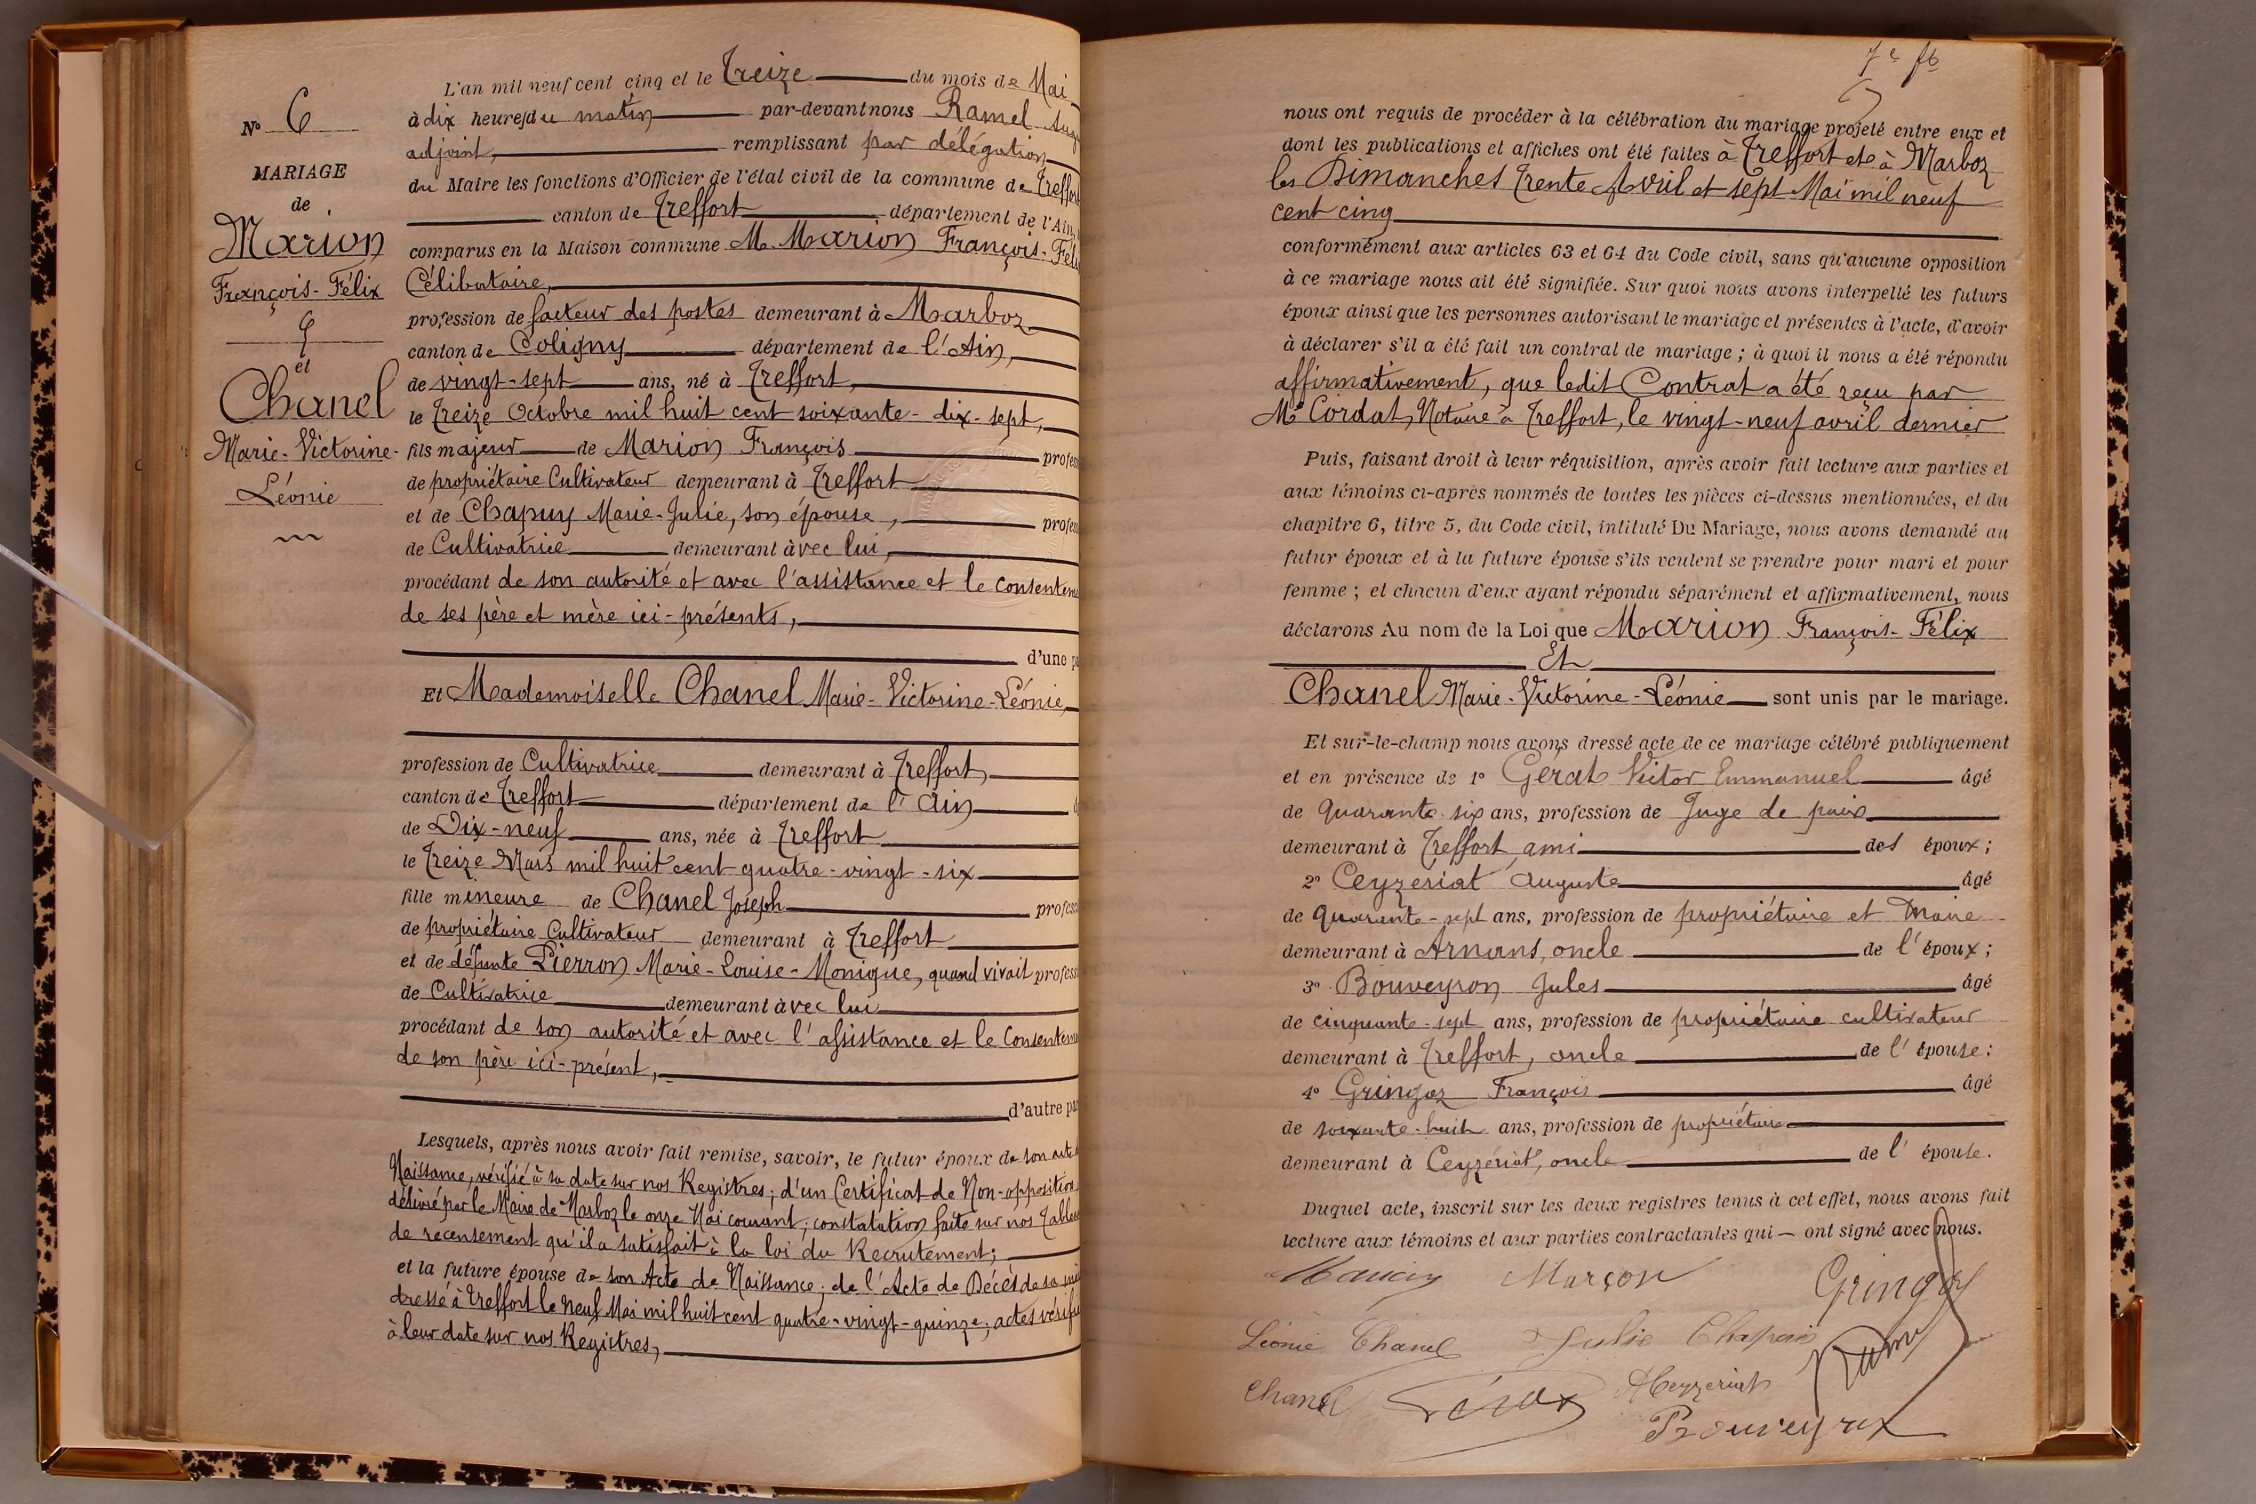 N° 6
MARIAGE
de
Marion
François-Félix
et
Chanel
Marie-Victorine-
Léonie
L'an mil neuf cent cinq et le Treize du mois de Mai
à dix heures du matin par-devant nous Ramel Aug
adjoint, remplissant par délégation
du Maire les fonctions d'Officier de l'état civil de la commune de Treffort
canton de Treffort département de l'Ain,
comparus en la Maison commune M. Marion François-Féli
Célibataire,
profession de facteur des postes demeurant à Marboz
canton de Coligny département de l'Ain,
de vingt-sept ans, né à Treffort,
le Treize Octobre mil huit cent soixante-dix-sept,
fils majeur de Marion François profess
de propriétaire Cultivateur demeurant à Treffort
et de Chapuy Marie-Julie, son épouse, profess
de Cultivatrice demeurant avec lui,
procédant de son autorité et avec l'assistance et le consenteme
de ses père et mère ici-présents,
d'une pa
Et Mademoiselle Chanel Marie-Victorine-Léonie,
profession de Cultivatrice demeurant à Treffort,
canton de Treffort département de l'Ain
de Dix-neuf ans, née à Treffort
le Treize Mars mil huit cent quatre-vingt-six
fille mineure de Chanel Joseph profess
de propriétaire Cultivateur demeurant à Treffort
et de défunte Pierron Marie-Louise-Monique, quand vivait profess
de Cultivatrice demeurant avec lui
procédant de son autorité et avec l'assistance et le Consenteme
de son père ici-présent,
d'autre par
Lesquels, après nous avoir fait remise, savoir, le futur époux de son acte d
Naissance, vérifié à sa date sur nos Registres; d'un Certificat de Non-opposition
délivré par le Maire de Marboz le onze Mai courant; constatation faite sur nos Tableau
de recensement qu'il a satisfait à la loi du Recrutement;
et la future épouse de son Acte de Naissance; de l'Acte de Décès de sa mè
dressé à Treffort le neuf Mai mil huit cent quatre-vingt-quinze; actes vérifié
à leur date sur nos Registres,
7e fo
nous ont requis de procéder à la célébration du mariage projeté entre eux et
dont les publications et affiches ont été faites à Treffort et à Marboz
les Dimanches Trente Avril et sept Mai mil neuf
cent cinq
conformément aux articles 63 et 64 du Code civil, sans qu'aucune opposition
à ce mariage nous ait été signifiée. Sur quoi nous avons interpellé les futurs
époux ainsi que les personnes autorisant le mariage et présentes à l'acte, d'avoir
à déclarer s'il a été fait un contrat de mariage; à quoi il nous a été répondu
affirmativement, que ledit Contrat a été reçu par
Me Cordat, Notaire à Treffort, le vingt-neuf avril dernier
Puis, faisant droit à leur réquisition, après avoir fait lecture aux parties et
aux témoins ci-après nommés de toutes les pièces ci-dessus mentionnées, et du
chapitre 6, titre 5, du Code civil, intitulé Du Mariage, nous avons demandé au
futur époux et à la future épouse s'ils veulent se prendre pour mari et pour
femme; et chacun d'eux ayant répondu séparément et affirmativement, nous
déclarons Au nom de la Loi que Marion François-Félix
Et
Chanel Marie-Victorine-Léonie sont unis par le mariage.
Et sur-le-champ nous avons dressé acte de ce mariage célébré publiquement
et en présence de 1° Gérat Victor Emmanuel âgé
de quarante-six ans, profession de Juge de paix
demeurant à Treffort, ami des époux;
2° Ceyzeriat Auguste âgé
de quarante-sept ans, profession de propriétaire et Maire
demeurant à Arnans, oncle de l'époux;
3° Bouveyron Jules âgé
de cinquante-sept ans, profession de propriétaire cultivateur
demeurant à Treffort, oncle de l'épouse;
4° Gringoz François âgé
de soixante-huit ans, profession de propriétaire
demeurant à Ceyzériat, oncle de l'épouse.
Duquel acte, inscrit sur les deux registres tenus à cet effet, nous avons fait
lecture aux témoins et aux parties contractantes qui ont signé avec nous.
Marion Gringoz
Léonie Chanel Julie Chapuis Ramel
Chanel Gérat ACeyzeriat
Bouveyron